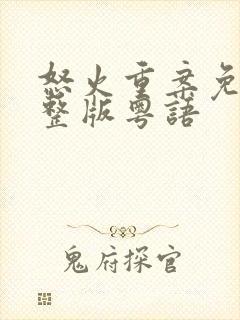 怒火重案免
整版粵語
鬼府探官